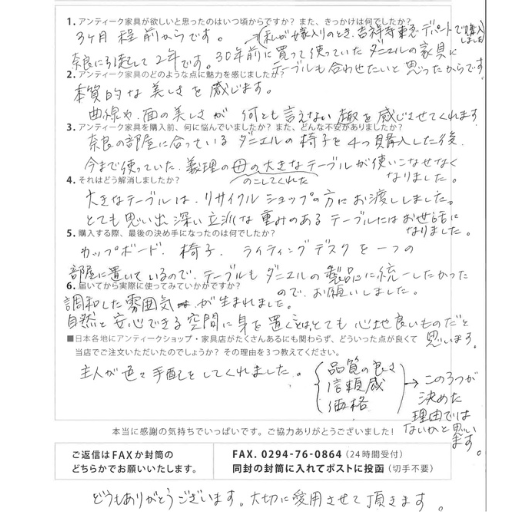 1. アンティーク家具が欲しいと思ったのはいつ頃からですか? また、きっかけは何でしたか?
3ヶ月程前からです。
(私が嫁入りのとき、吉祥寺東急デパートで購入しました
奈良に引越して2年です。30年前に買って使っていたダニエルの家具に
テーブルも合わせたいと思ったからです。
2. アンティーク家具のどのような点に魅力を感じましたか?
本質的な美しさを感じます。
曲線や、面の美しさが何とも言えない趣を感じさせてくれます
3. アンティーク家具を購入前、何に悩んでいましたか? また、どんな不安がありましたか?
奈良の部屋に合っているダニエルの椅子を4つ購入した後、
今まで使っていた義理の母の大きなテーブルが使いこなせなく
なりました。
のこしてくれた
4. それはどう解消しましたか?
大きなテーブルは、リサイクルショップの方にお渡ししました。
とても思い出深い立派な重みのあるテーブルにはお世話に
なりました。
5. 購入する際、最後の決め手になったのは何でしたか?
カップボード、椅子、ライティングデスクを一つの
部屋に置いているので、テーブルもダニエルの製品に統一したかった
ので、お願いしました。
6. 届いてから実際に使ってみていかがですか?
調和した雰囲気が生まれました。
自然と安心できる空間に身を置くことはとても心地良いものだと
思います。
■日本各地にアンティークショップ・家具店がたくさんあるにも関わらず、どういった点が良くて
当店でご注文いただいたのでしょうか? その理由を3つ教えてください。
主人が色々手配をしてくれました。
品質の良さ
信頼感
価格
→この3つが
決めた
理由では
ないかと思い
ます。
本当に感謝の気持ちでいっぱいです。ご協力ありがとうございました!
ご返信はFAXか封筒の
どちらかでお願いいたします。
FAX. 0294-76-0864 (24時間受付)
同封の封筒に入れてポストに投函 (切手不要)
どうもありがとうございます。大切に愛用させて頂きます。